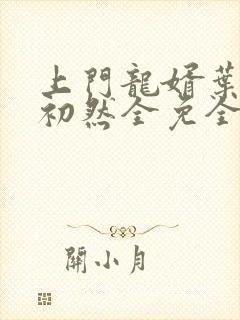 上門龍婿葉
初然全免全
關小月